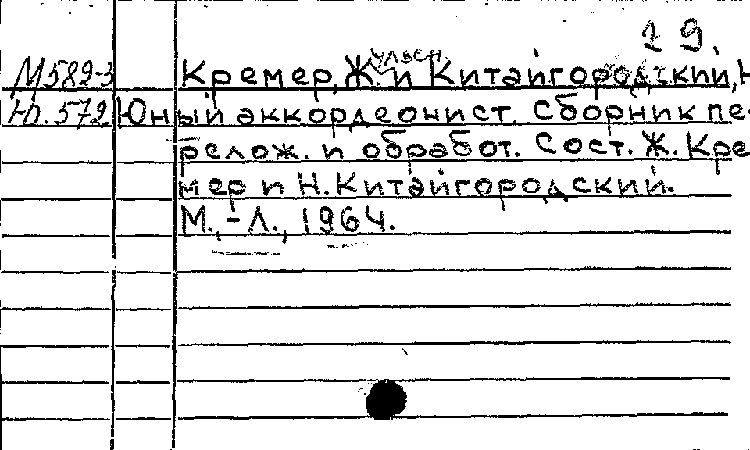 29
М582-3 Кремер, Ж. и Китайгородский, Н
Ю.572 Юный аккордеонист. Сборник пе-
релож. и обработ. Сост. Ж. Кре
мер и Н. Китайгородский.
М.,-Л., 1964.